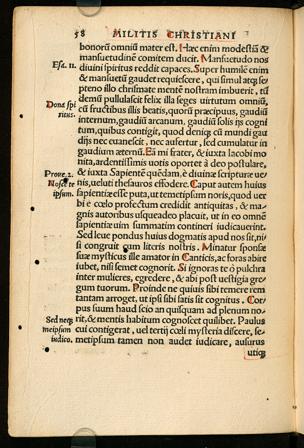 58 MILITIS CHRISTIANI
bonorũ omniũ mater est. Hæc enim modestiã &
mansuetudinẽ comitem ducit. Mansuetudo nos
Esa. 11. diuini spiritus reddit capaces. Super humilẽ enim
& mansuetũ gaudet requiescere, qui simul atq; se-
pteno illo charismate mentẽ nostram imbuerit, tũ
Dona spi demũ pullulascit felix illa seges uirtutum omniũ,
ritus. cũ fructibus illis beatis, quorũ præcipuus, gaudiũ
internum, gaudiũ arcanum. gaudiũ solis ijs cogni
tum, quibus contigit, quod deniq; cũ mundi gau
dijs nec euanescit, nec aufertur, sed cumulatur in
gaudium æternũ. Eã mi frater, & iuxta Iacobi mo
nita, ardentissimis uotis oportet à deo postulare,
Prouer. 2. & iuxta sapientẽ quendã, è diuinæ scripturæ ue-
Nosce te nis, ueluti thesauros effodere. Caput autem huius
ipsum. sapientiæ esse puta, ut temetipsum noris, quod uer
bi e cœlo profectum credidit antiquitas, & ma-
gnis autoribus usqueadeo placuit, ut in eo omnẽ
sapientiæ uim summatim contineri iudicauerint.
Sed leue pondus huius dogmatis apud nos sit, ni
si congruit cum literis nostris. Minatur sponsæ
suæ mysticus ille amator in Canticis, ac foras abire
iubet, nisi semet cognorit. Si ignoras te ô pulchra
inter mulieres, egredere, & abi post uestigia gre-
gum tuorum. Proinde ne quiuis sibi temere rem
tantam arroget, ut ipsi sibi satis sit cognitus. Cor
pus suum haud scio an quisquam ad plenum no-
Sed neq; rit, & mentis habitum cognoscet quilibet. Paulus
meipsum cui contigerat, uel tertij cœli mysteria discere, se-
iudico. metipsum tamen non audet iudicare, ausurus
utiq;